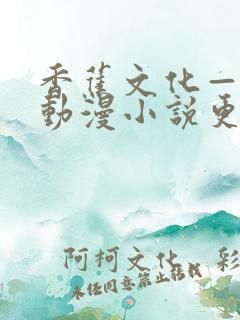 香蕉文化—
動漫小說更
阿柯文化 彩
未经同意禁止转载